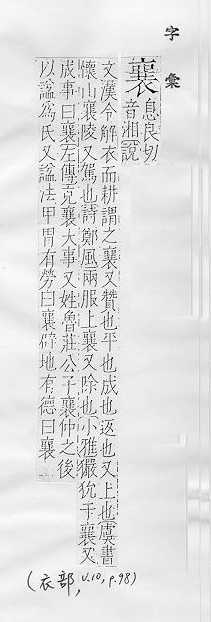 字彙
襄 息良切
音湘說
文漢令解衣而耕謂之襄又贊也平也成也返也又上也虞書
懷山襄陵又駕也詩鄭風兩服上襄又除也小雅玁狁于襄又
成事曰襄左傳克襄大事又姓魯莊公子襄仲之後
以諡為氏又諡法甲冑有勞曰襄辟地有德曰襄
(衣部, v.10, p.98)